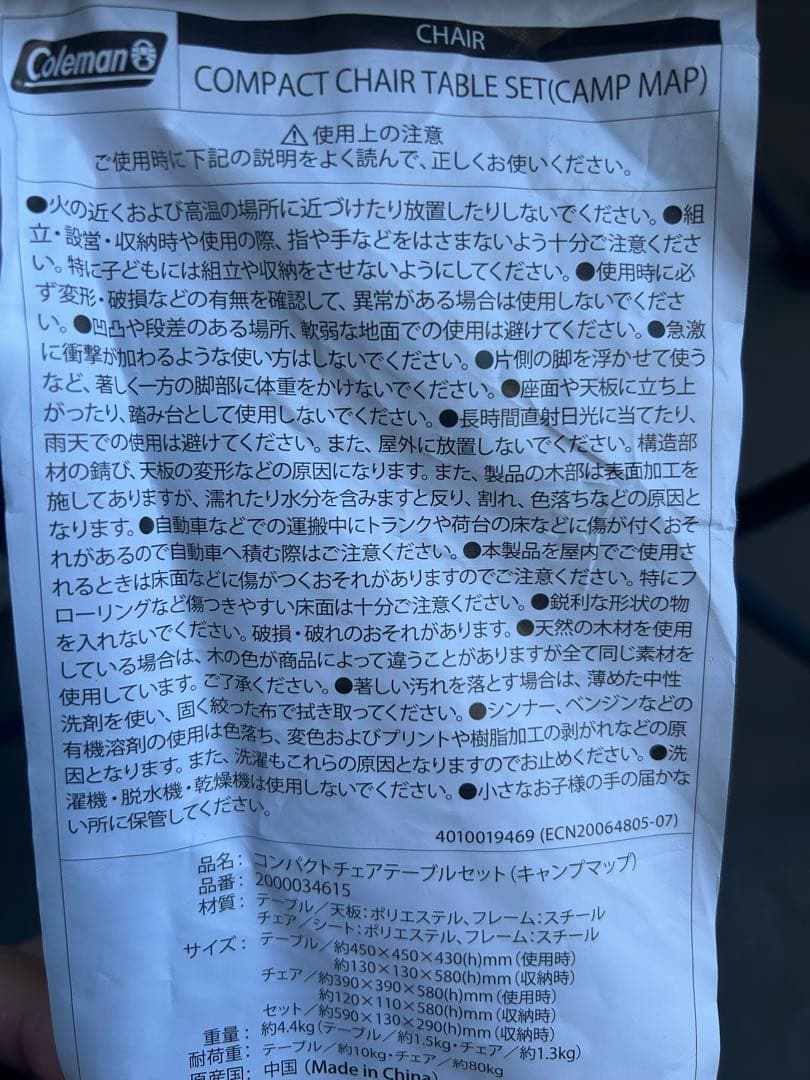 Coleman
CHAIR
COMPACT CHAIR TABLE SET(CAMP MAP)
⚠使用上の注意
ご使用時に下記の説明をよく読んで、正しくお使いください。
●火の近くおよび高温の場所に近づけたり放置したりしないでください。●組
立・設営・収納時や使用の際、指や手などをはさまないよう十分ご注意くださ
い。特に子どもには組立や収納をさせないようにしてください。●使用時に必
ず変形・破損などの有無を確認して、異常がある場合は使用しないでくださ
い。●凹凸や段差のある場所、軟弱な地面での使用は避けてください。●急激
に衝撃が加わるような使い方はしないでください。●片側の脚を浮かせて使う
など、著しく一方の脚部に体重をかけないでください。●座面や天板に立ち上
がったり、踏み台として使用しないでください。●長時間直射日光に当てたり、
雨天での使用は避けてください。また、屋外に放置しないでください。構造部
材の錆び、天板の変形などの原因になります。また、製品の木部は表面加工を
施してありますが、濡れたり水分を含みますと反り、割れ、色落ちなどの原因と
なります。●自動車などでの運搬中にトランクや荷台の床などに傷が付くおそ
れがあるので自動車へ積む際はご注意ください。●本製品を屋内でご使用さ
れるときは床面などに傷がつくおそれがありますのでご注意ください。特にフ
ローリングなど傷つきやすい床面は十分ご注意ください。●鋭利な形状の物
を入れないでください。破損・破れのおそれがあります。●天然の木材を使用
している場合は、木の色が商品によって違うことがありますが全て同じ素材を
使用しています。ご了承ください。●著しい汚れを落とす場合は、薄めた中性
洗剤を使い、固く絞った布で拭き取ってください。●シンナー、ベンジンなどの
有機溶剤の使用は色落ち、変色およびプリントや樹脂加工の剥がれなどの原
因となります。また、洗濯もこれらの原因となりますのでお止めください。●洗
濯機・脱水機・乾燥機は使用しないでください。●小さなお子様の手の届かな
い所に保管してください。
4010019469 (ECN20064805-07)
品名：コンパクトチェアテーブルセット（キャンプマップ）
品番：2000034615
材質：テーブル／天板：ポリエステル、フレーム：スチール
チェア／シート：ポリエステル、フレーム：スチール
サイズ：テーブル／約450×450×430(h)mm（使用時）
約130×130×580(h)mm（収納時）
チェア／約390×390×580(h)mm（使用時）
約120×110×580(h)mm（収納時）
セット／約590×130×290(h)mm（収納時）
重量：約4.4kg（テーブル／約1.5kg・チェア／約1.3kg）
耐荷重：テーブル／約10kg・チェア／約80kg
原産国：中国（Made in China）